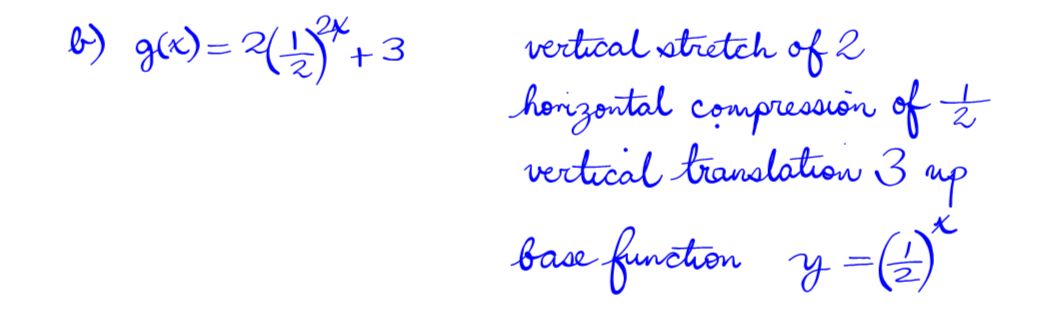 b) g(x) = 2(1/2)^2x + 3
vertical stretch of 2
horizontal compression of 1/2
vertical translation 3 up
base function y = (1/2)^x